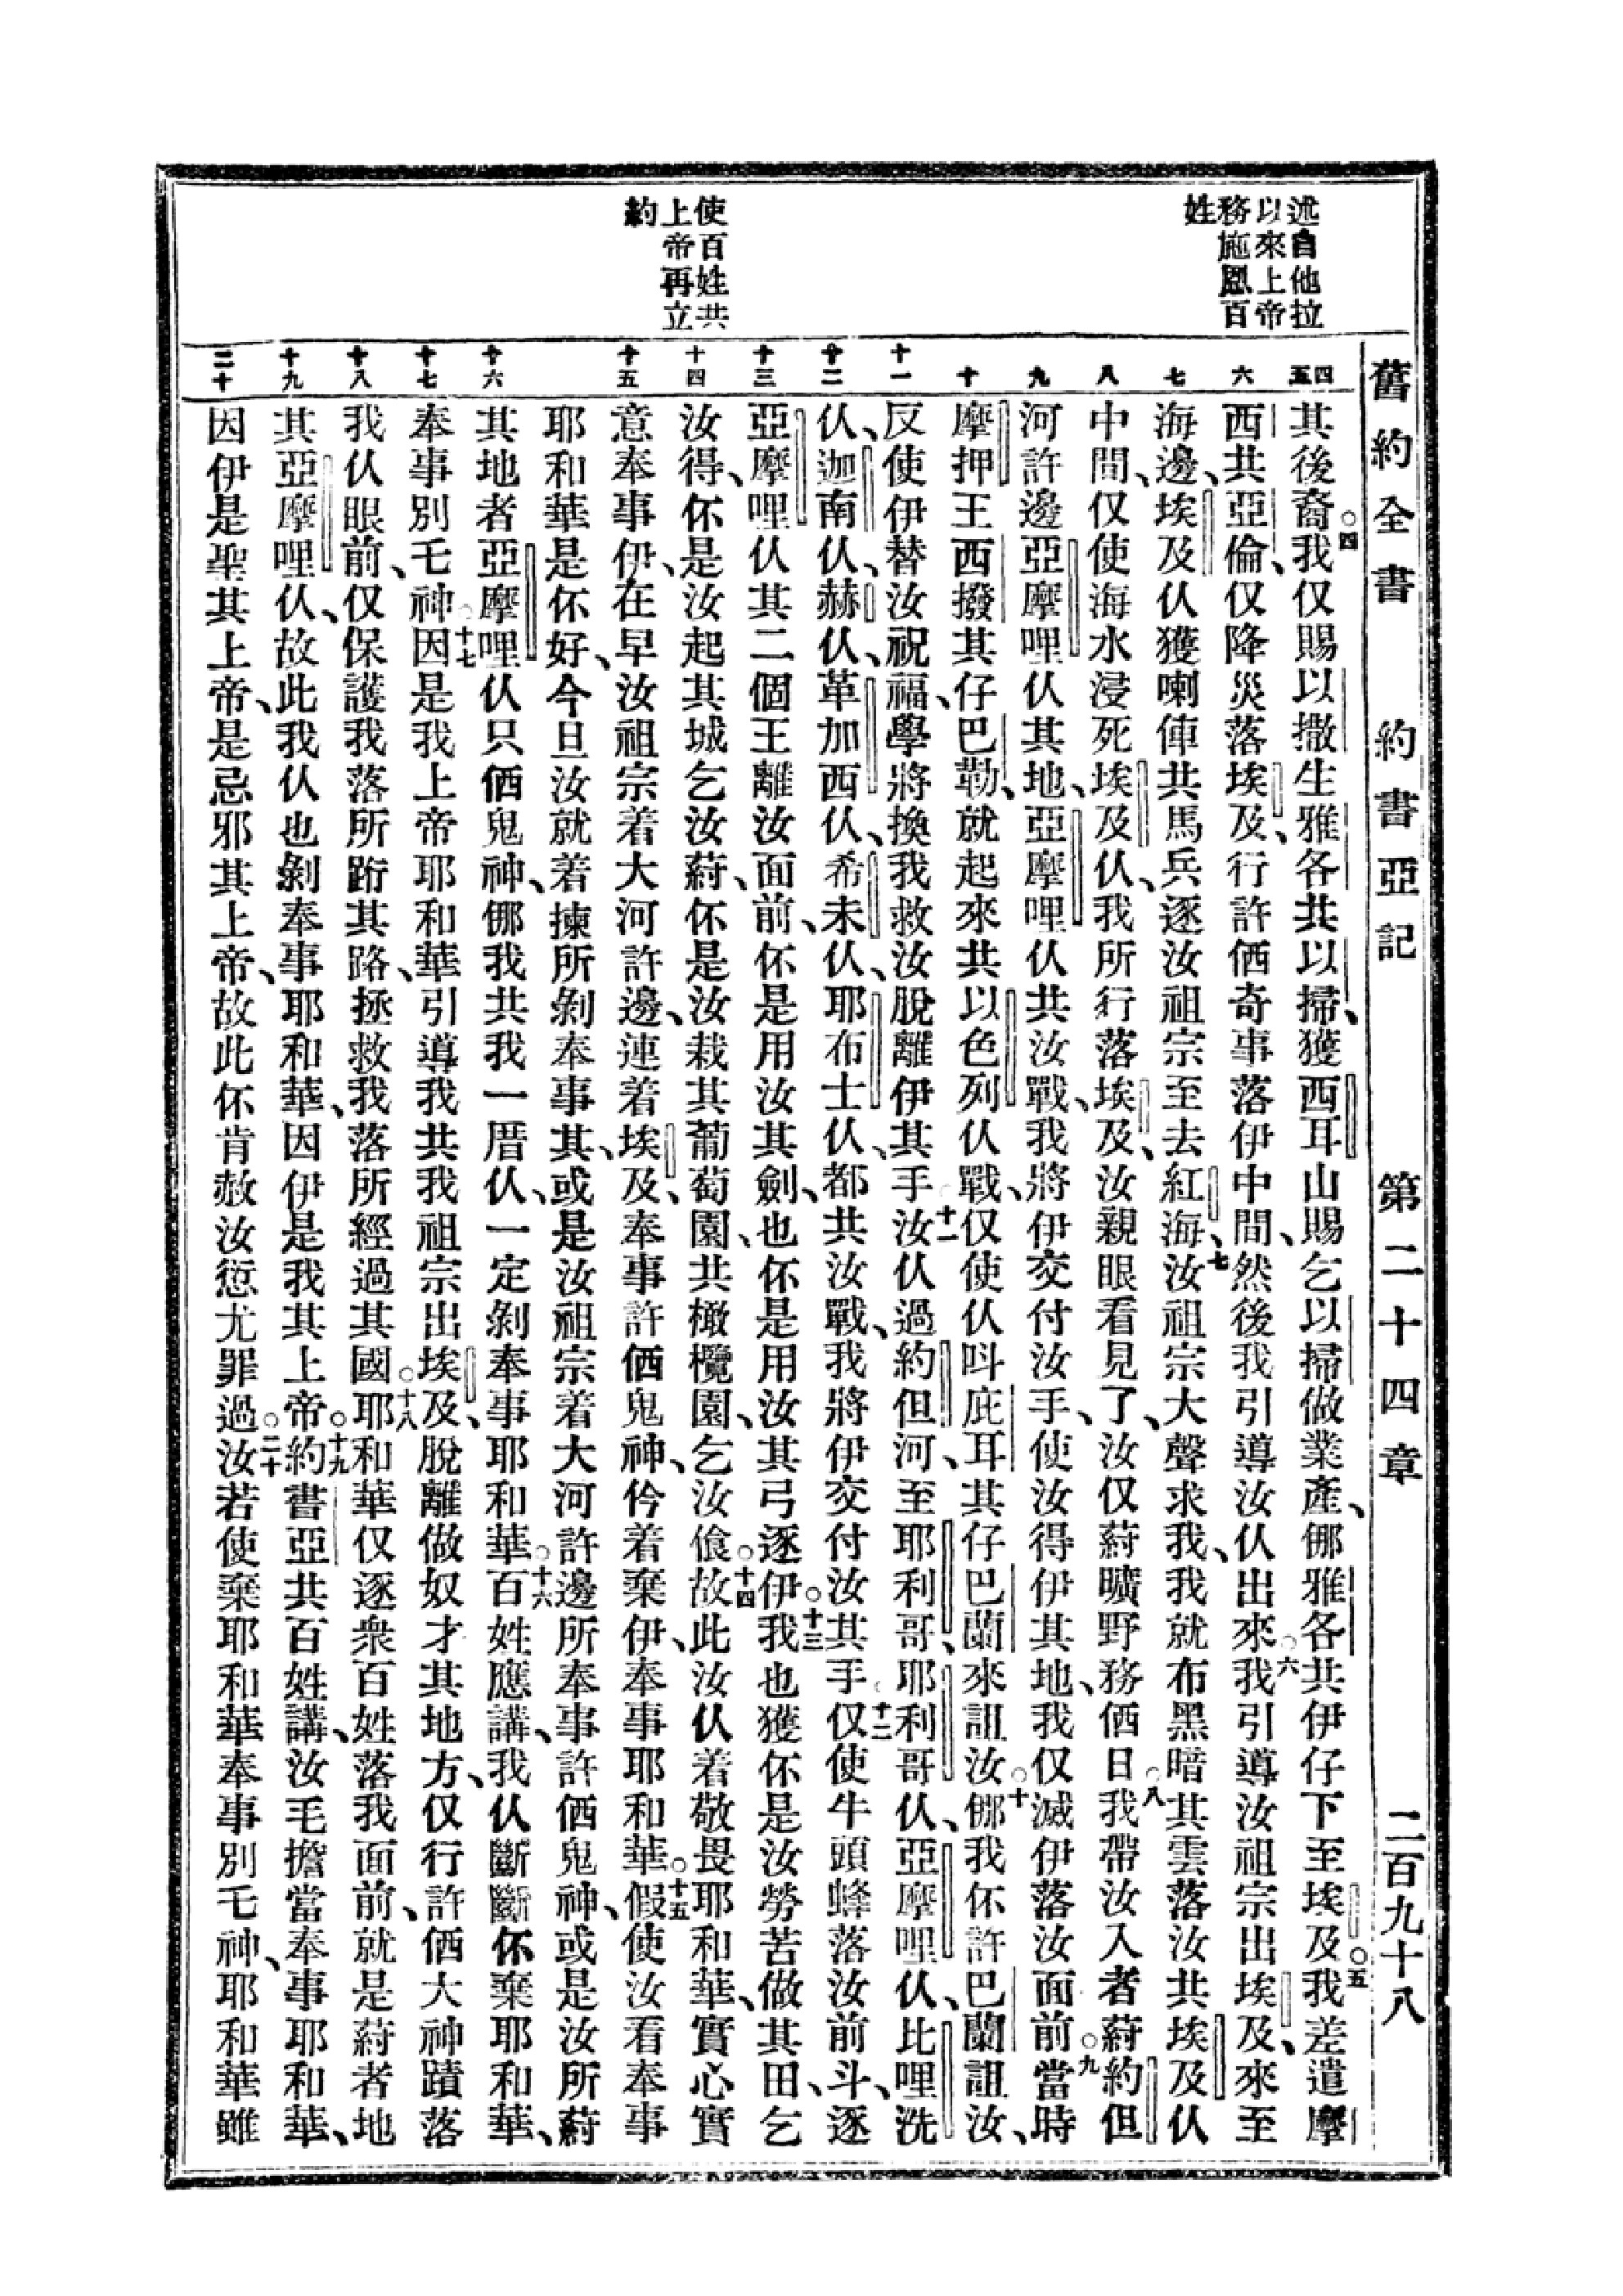 舊約全書 約書亞記 第二十四章 二百九十八
述自他拉
以來上帝
務施恩百
姓
使百姓共
上帝再立
約
四 五 六 七 八 九 十 十一 十二 十三 十四 十五 十六 十七 十八 十九 二十
其後裔○四我仅賜以撒生雅各共以掃、獲西耳山賜乞以掃做業產、𪜶雅各共伊仔下至埃及○五我差遣摩
西共亞倫、仅降災落埃及、行許価奇事落伊中間、然後我引導汝仈出來○六我引導汝祖宗出埃及、來至
海邊、埃及仈獲喇俥共馬兵逐汝祖宗至去紅海、○七汝祖宗大聲求我、我就布黑暗其雲落汝共埃及仈
中間、仅使海水浸死埃及仈、我所行落埃及、汝親眼看見了、汝仅蔚曠野務価日○八我帶汝入者蔚約但
河許邊亞摩哩仈其地、亞摩哩仈共汝戰、我將伊交付汝手、使汝得伊其地、我仅滅伊落汝面前○九當時
摩押王西撥其仔巴勒、就起來共以色列仈戰、仅使仈呌庇耳其仔巴蘭來詛汝○十𪜶我伓許巴蘭詛汝、
反使伊替汝祝福、學將換我救汝脫離伊其手○十一汝仈過約但河、至耶利哥、耶利哥仈、亞摩哩仈、比哩洗
仈、迦南仈、赫仈、革加西仈、希未仈、耶布士仈、都共汝戰、我將伊交付汝其手○十二仅使牛頭蜂落汝前斗、逐
亞摩哩仈其二個王離汝面前、伓是用汝其劍、也伓是用汝其弓逐伊○十三我也獲伓是汝勞苦做其田、乞
汝得、伓是汝起其城乞汝蔚、伓是汝栽其葡萄園、共橄欖園、乞汝飧○十四故此汝仈着敬畏耶和華、實心實
意奉事伊、在早汝祖宗着大河許邊、連着埃及、奉事許価鬼神、仱着棄伊、奉事耶和華○十五假使汝看奉事
耶和華是伓好、今旦汝就着揀所剝奉事其、或是汝祖宗着大河許邊所奉事許価鬼神、或是汝所蔚
其地者亞摩哩仈只価鬼神、𪜶我共我一厝仈、一定剝奉事耶和華○十六百姓應講、我仈斷斷伓棄耶和華、
奉事別乇神○十七因是我上帝耶和華引導我共我祖宗出埃及、脫離做奴才其地方、仅行許価大神蹟落
我仈眼前、仅保護我落所跲其路、拯救我落所經過其國○十八耶和華仅逐衆百姓落我面前、就是蔚者地
其亞摩哩仈、故此我仈也剝奉事耶和華、因伊是我其上帝○十九約書亞共百姓講、汝毛擔當奉事耶和華、
因伊是聖其上帝、是忌邪其上帝、故此伓肯赦汝愆尤罪過○二十汝若使棄耶和華奉事別乇神、耶和華雖